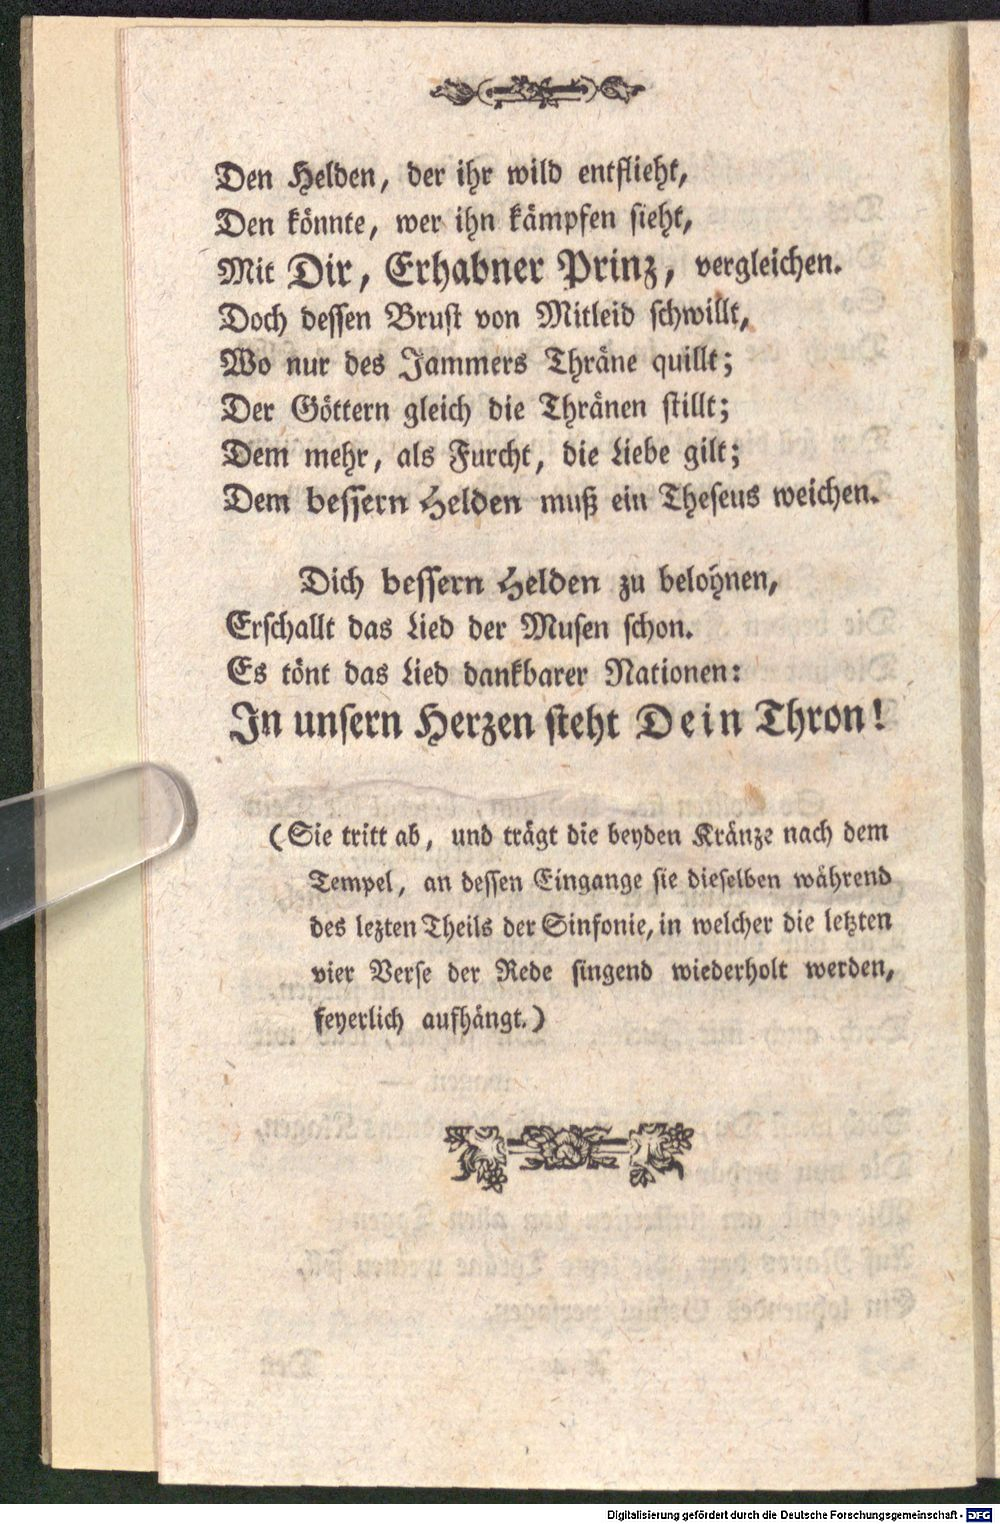 Den Helden, der ihr wild entflieht,
Den könnte, wer ihn kämpfen sieht,
Mit Dir, Erhabner Prinz, vergleichen.
Doch dessen Brust von Mitleid schwillt,
Wo nur des Jammers Thräne quillt;
Der Göttern gleich die Thränen stillt;
Dem mehr, als Furcht, die Liebe gilt;
Dem bessern Helden muß ein Theseus weichen.
Dich bessern Helden zu belohnen,
Erschallt das Lied der Musen schon.
Es tönt das Lied dankbarer Nationen:
In unsern Herzen steht Dein Thron!
(Sie tritt ab, und trägt die beyden Kränze nach dem
Tempel, an dessen Eingange sie dieselben während
des lezten Theils der Sinfonie, in welcher die letzten
vier Verse der Rede singend wiederholt werden,
feyerlich aufhängt.)
Digitalisierung gefördert durch die Deutsche Forschungsgemeinschaft - DFG